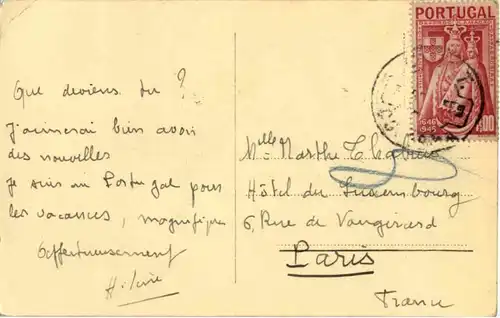 Que deviens tu ?
J'aimerai bien avoir
des nouvelles
Je suis au Portugal pour
les vacances, magnifique
Affectueusement
PORTUGAL
1646
1946
Melle Marthe
Hôtel du Luxembourg
6, Rue de Vaugirard
Paris
France